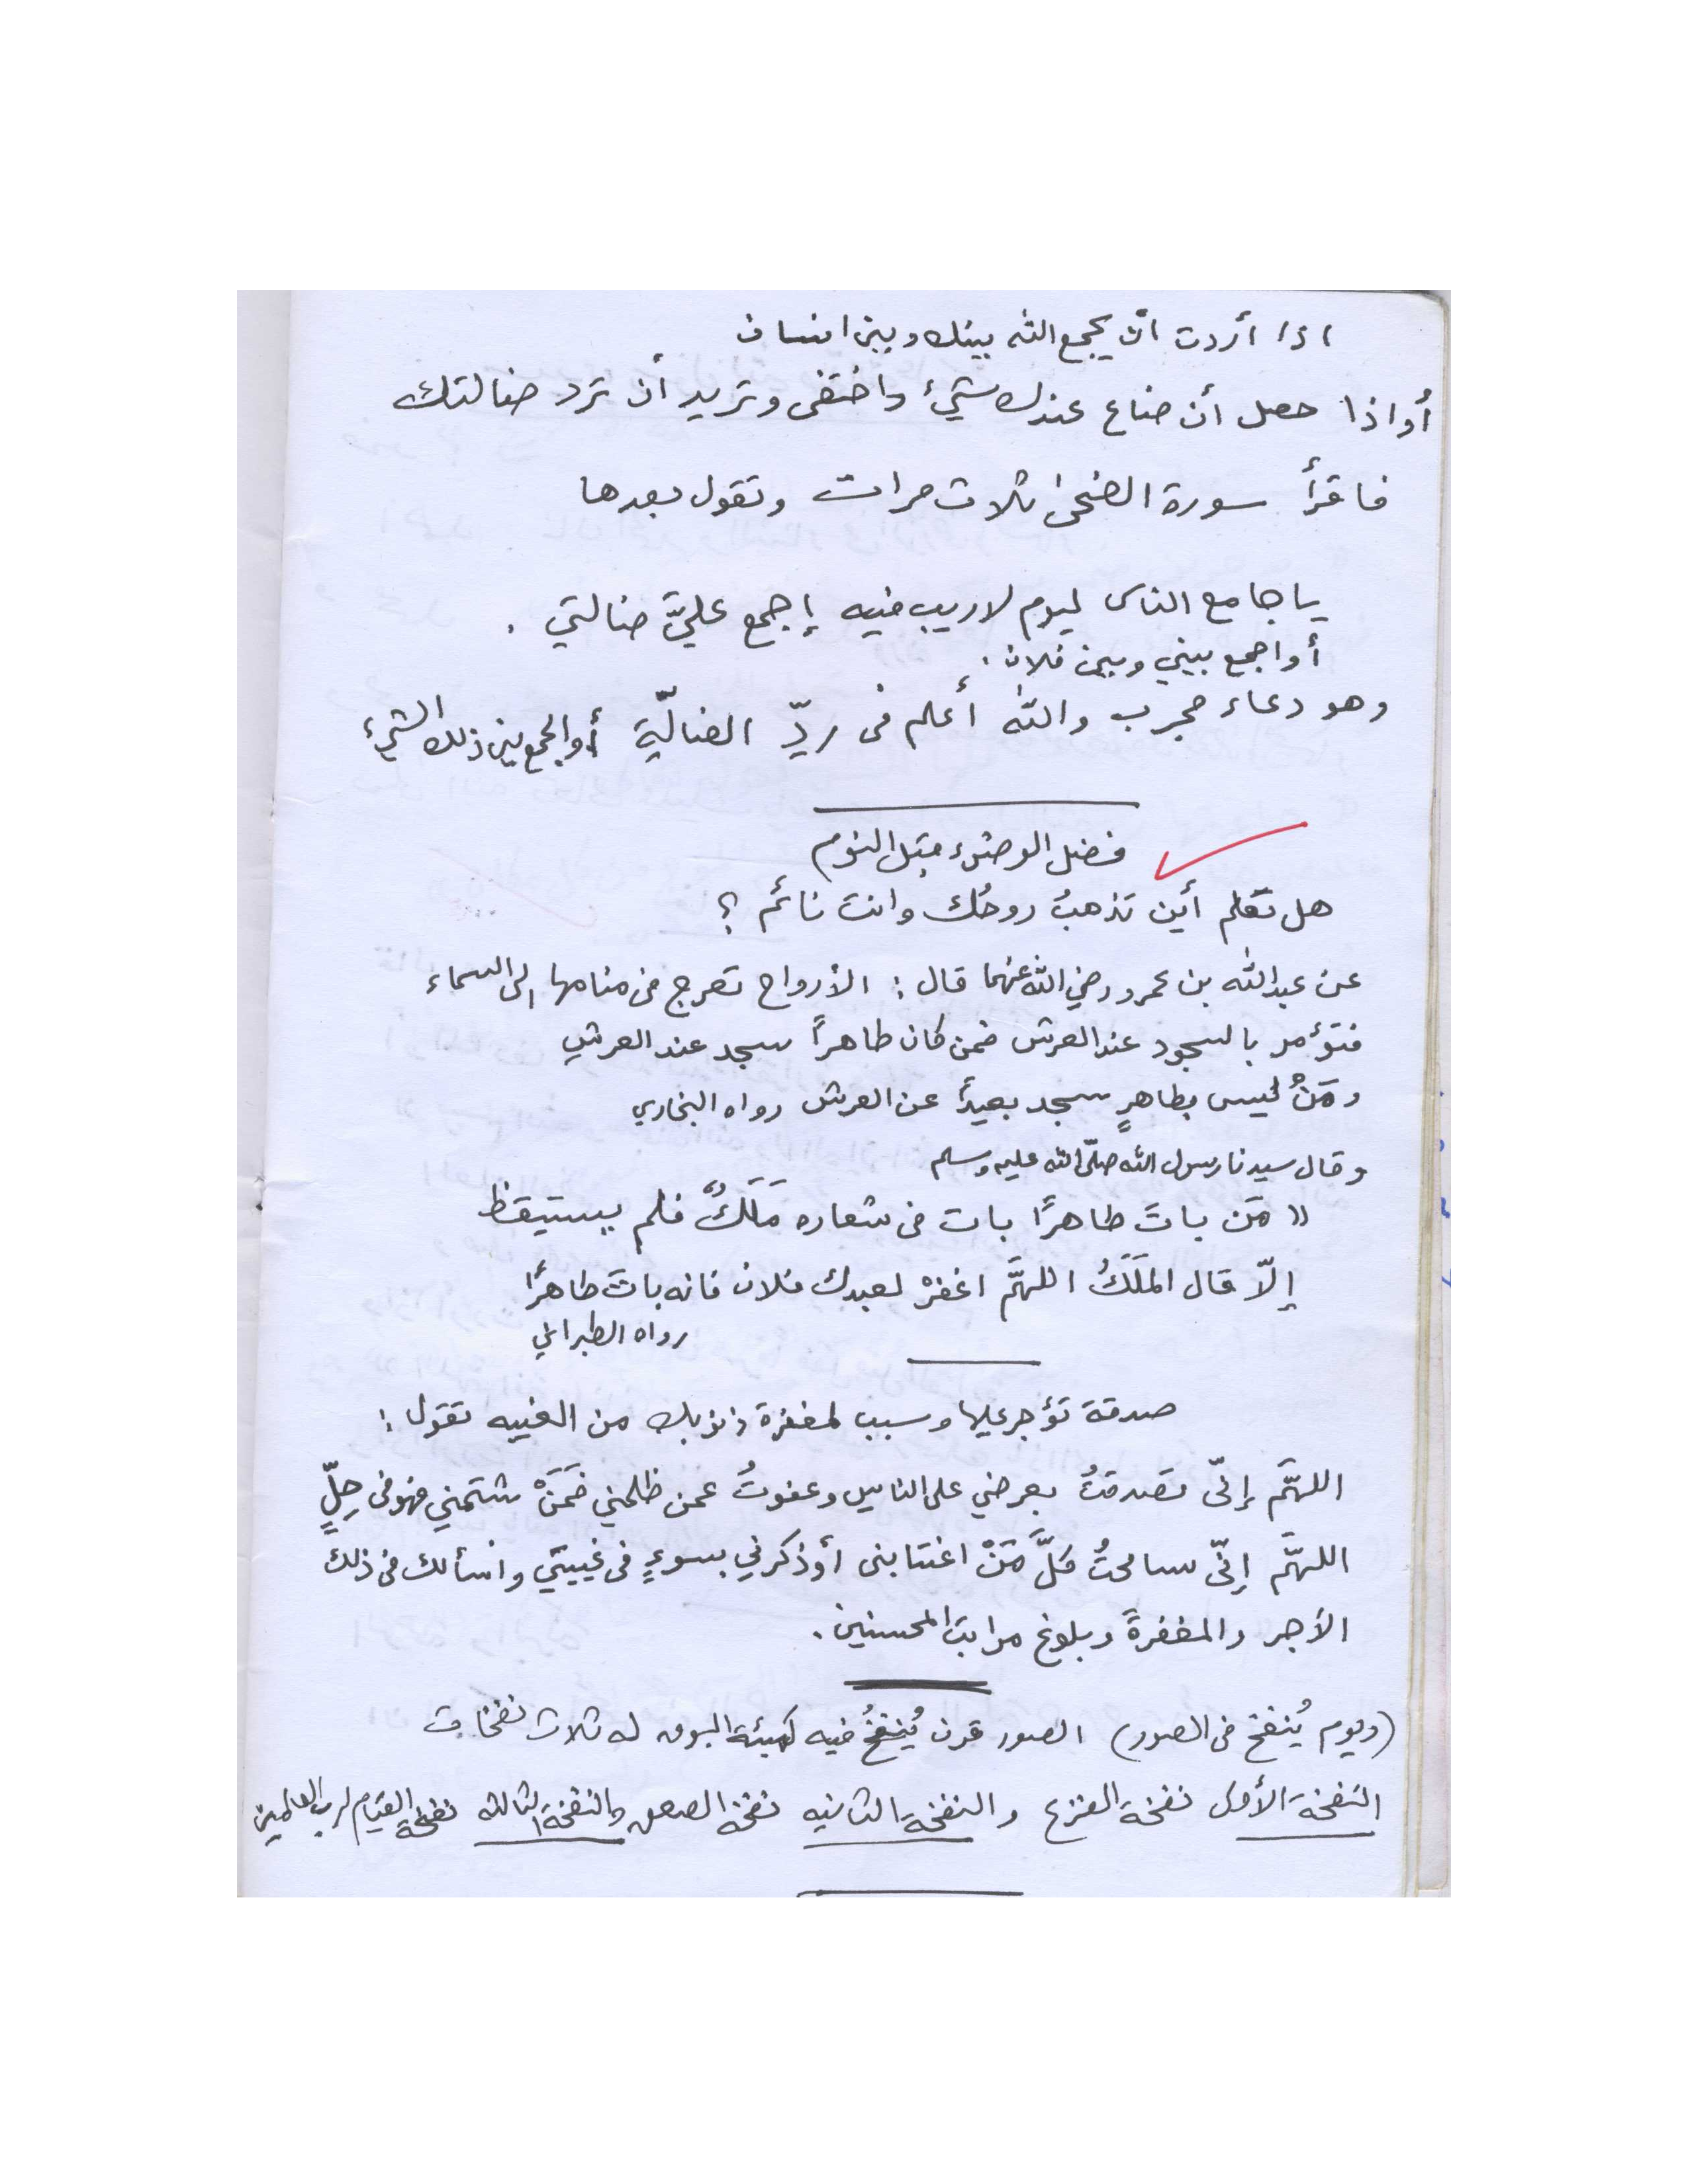 اذا أردت ان يجمع الله بينك وبين انسان
أو اذا حصل أن ضاع عندك شيء واختفى وتريد أن ترد ضالتك
فاقرأ سورة الضحى ثلاث مرات وتقول بعدها
يا جامع الناس ليوم لا ريب فيه إجمع عليَّ ضالتي .
أو اجمع بيني وبين فلان .
وهو دعاء مجرب والله أعلم فى ردِّ الضالّة أو الجمع بين ذلك الشيء
فضل الوضوء قبل النوم
هل تعلم أين تذهبُ روحُك وانت نائم ؟
عن عبد الله بن عمرو رضي الله عنهما قال : الأرواح تعرج فى منامها إلى السماء
فتؤمر بالسجود عند العرش فمن كان طاهراً سجد عند العرش
ومَنْ ليس بطاهرٍ سجد بعيداً عن العرش رواه البخاري
وقال سيدنا رسول الله صلّى الله عليه وسلم
" مَن باتَ طاهرًا بات فى شعاره مَلَكٌ فلم يستيقظ
إلّا قال المَلَكُ اللهمَّ اغفرْ لعبدك فلان فانه باتَ طاهرًا
رواه الطبراني
صدقة تؤجر عليها وسبب لمغفرة ذنوبك من الغيبه تقول :
اللهمَّ إنّى تصَدقتُ بعرضي على الناس وعفوتُ عمن ظلمني فمَنْ شتمني فهو فى حِلٍّ
اللهمَّ إنّى سامحتُ كلَّ مَنْ اغتابنى أو ذكرني بسوءٍ فى غيبتي واسألك فى ذلك
الأجر والمغفرةَ وبلوغ مراتب المحسنين .
(ويوم يُنفخ فى الصور) الصور قرن يُنفخُ فيه كهيئة البوق له ثلاث نفخات
النفخة الأولى نفخة الفزع والنفخة الثانيه نفخة الصعق والنفخة الثالثه نفخة القيام لرب العالمين